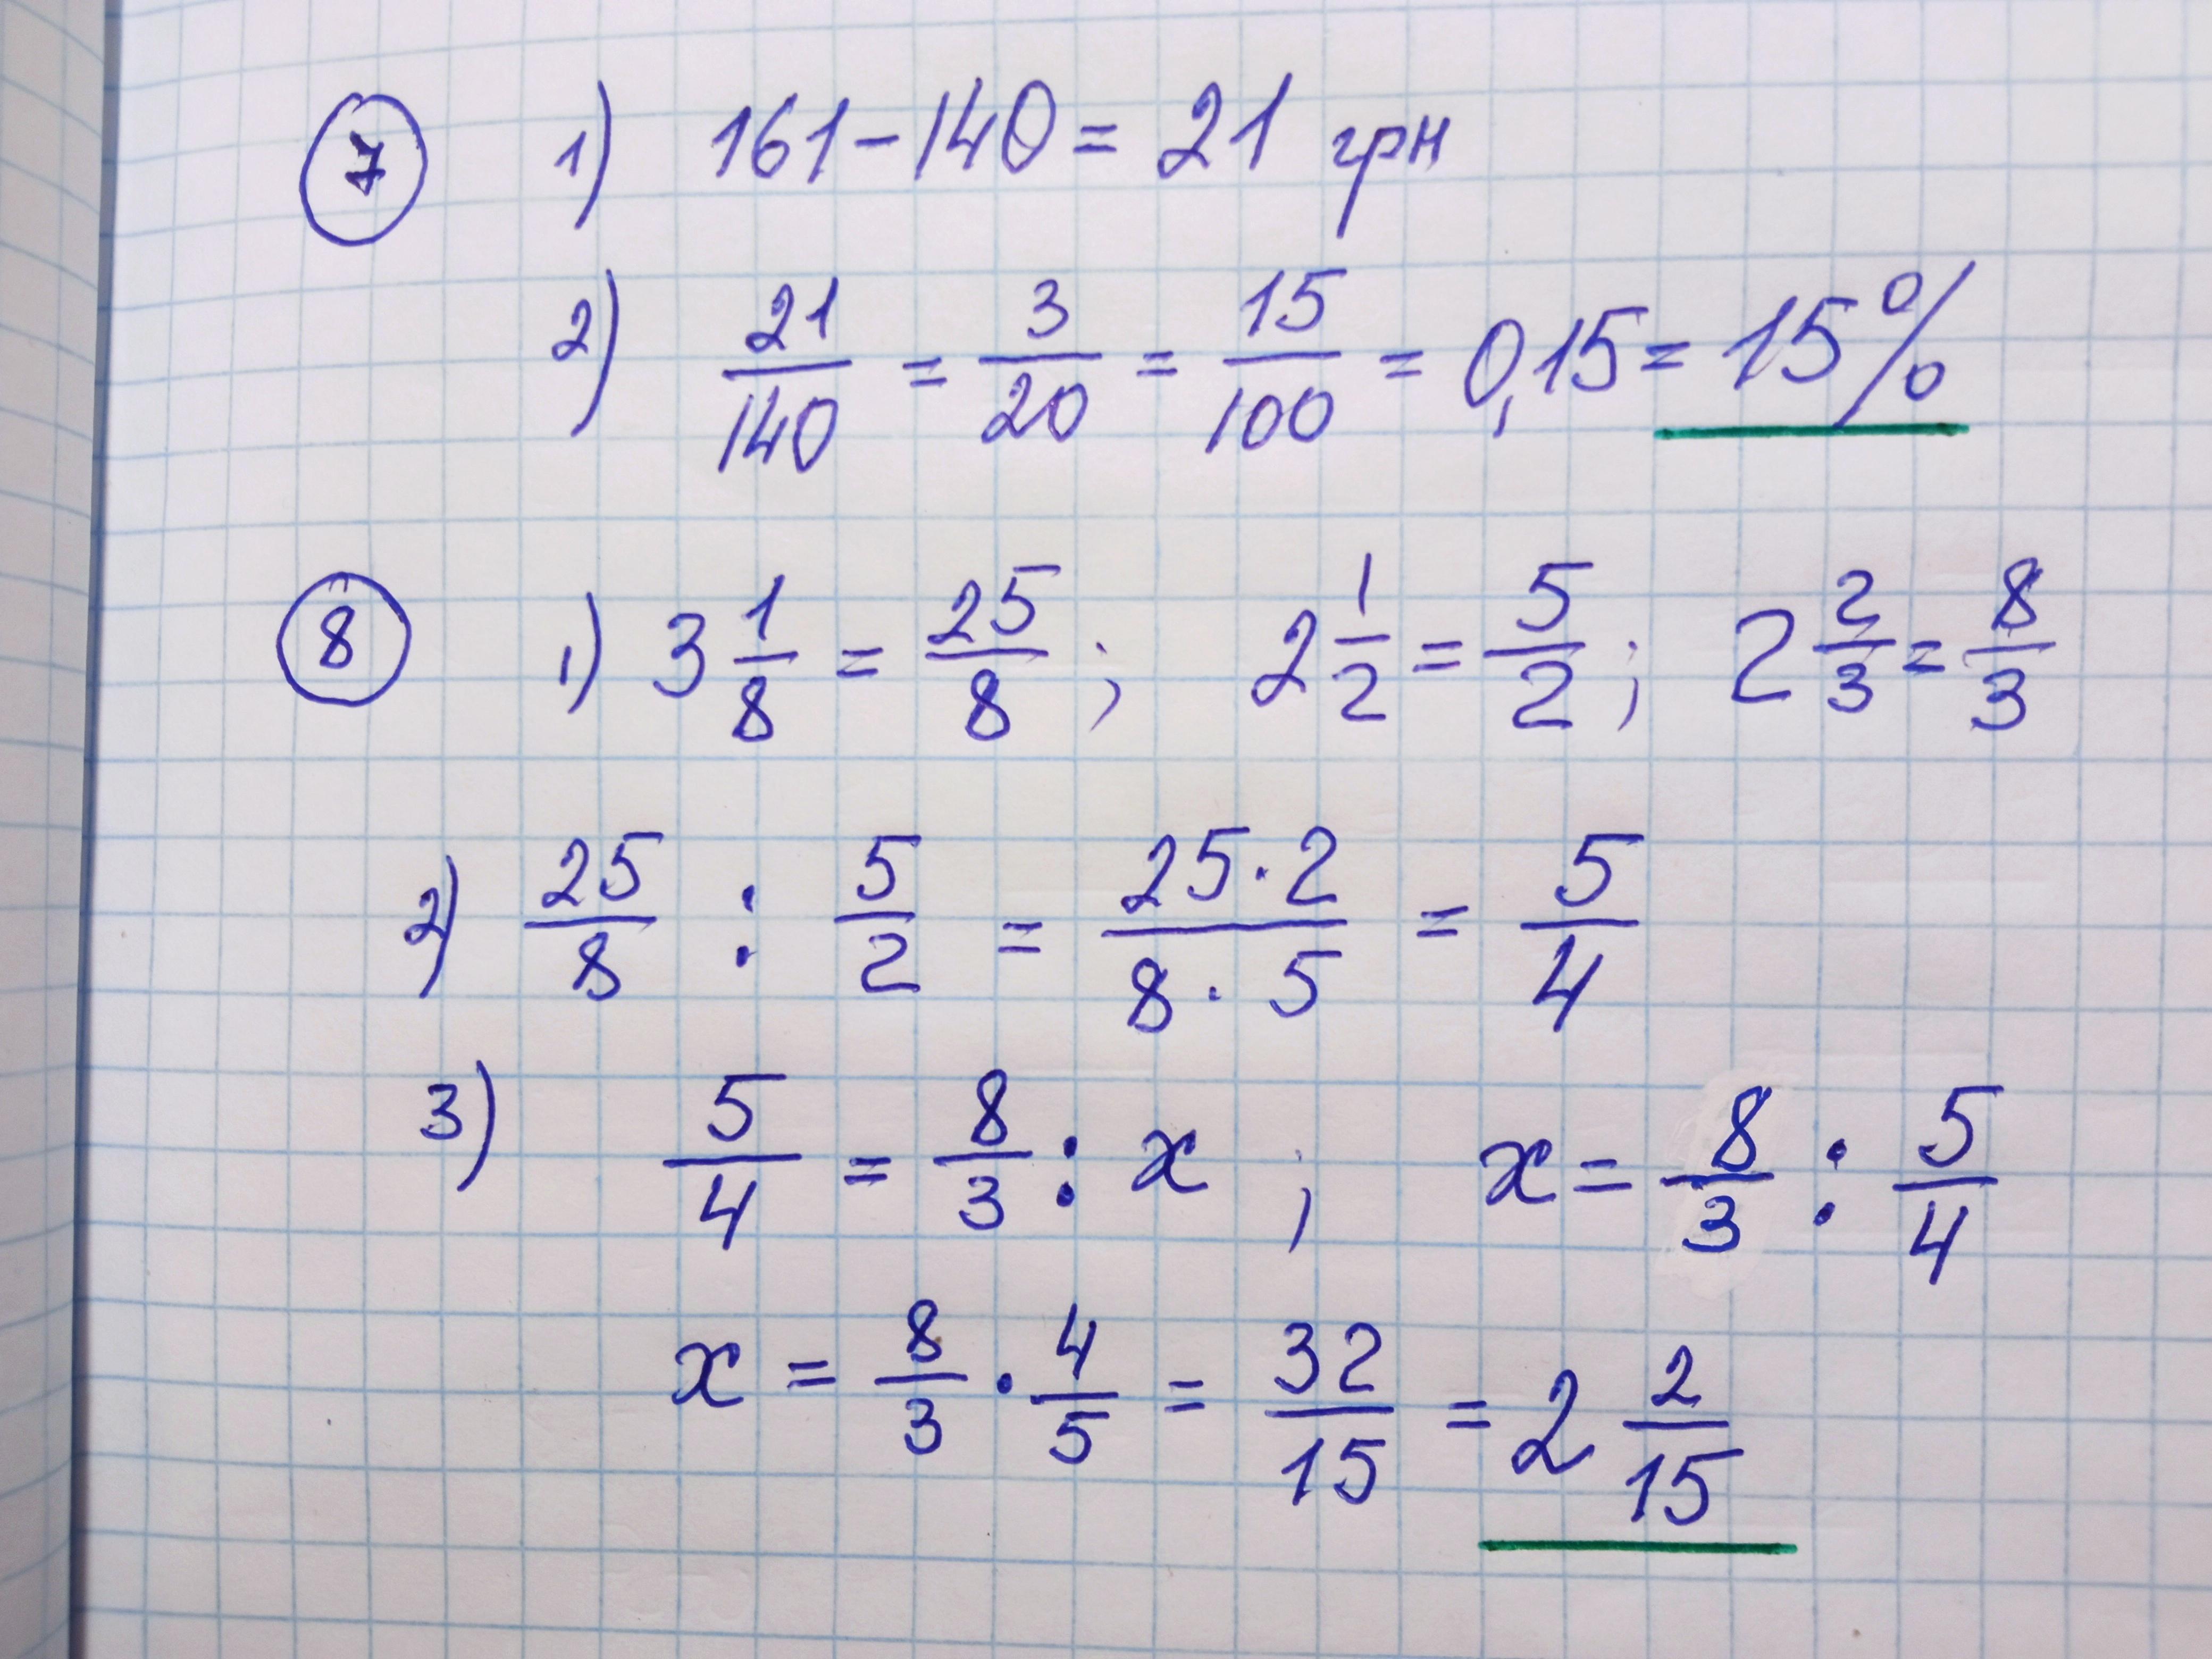 7 1) 161 - 140 = 21 грн
2) 21/140 = 3/20 = 15/100 = 0,15 = 15%
8 1) 3 1/8 = 25/8 ; 2 1/2 = 5/2 ; 2 2/3 = 8/3
2) 25/8 : 5/2 = 25·2/8·5 = 5/4
3) 5/4 = 8/3 : x ; x = 8/3 : 5/4
x = 8/3 · 4/5 = 32/15 = 2 2/15